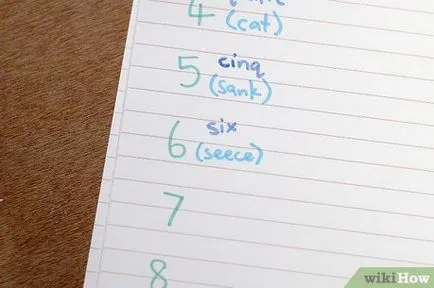 4
(cat)
5 cinq
(sank)
6 six
(seece)
7
8
wikiHow